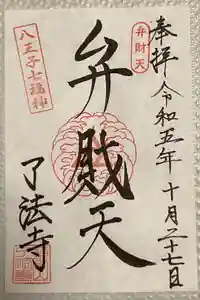 奉拝 令和五年 十月二十七日
弁財天
弁財天
八王子七福神
了法寺